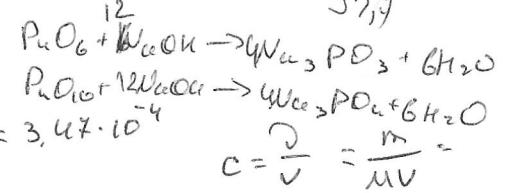 12
57,4
P₄O₆ + NaOH → 4Na₃PO₃ + 6H₂O
P₄O₁₀ + 12NaOH → 4Na₃PO₄ + 6H₂O
= 3,47·10⁻⁴
c = ν/V = m/MV =